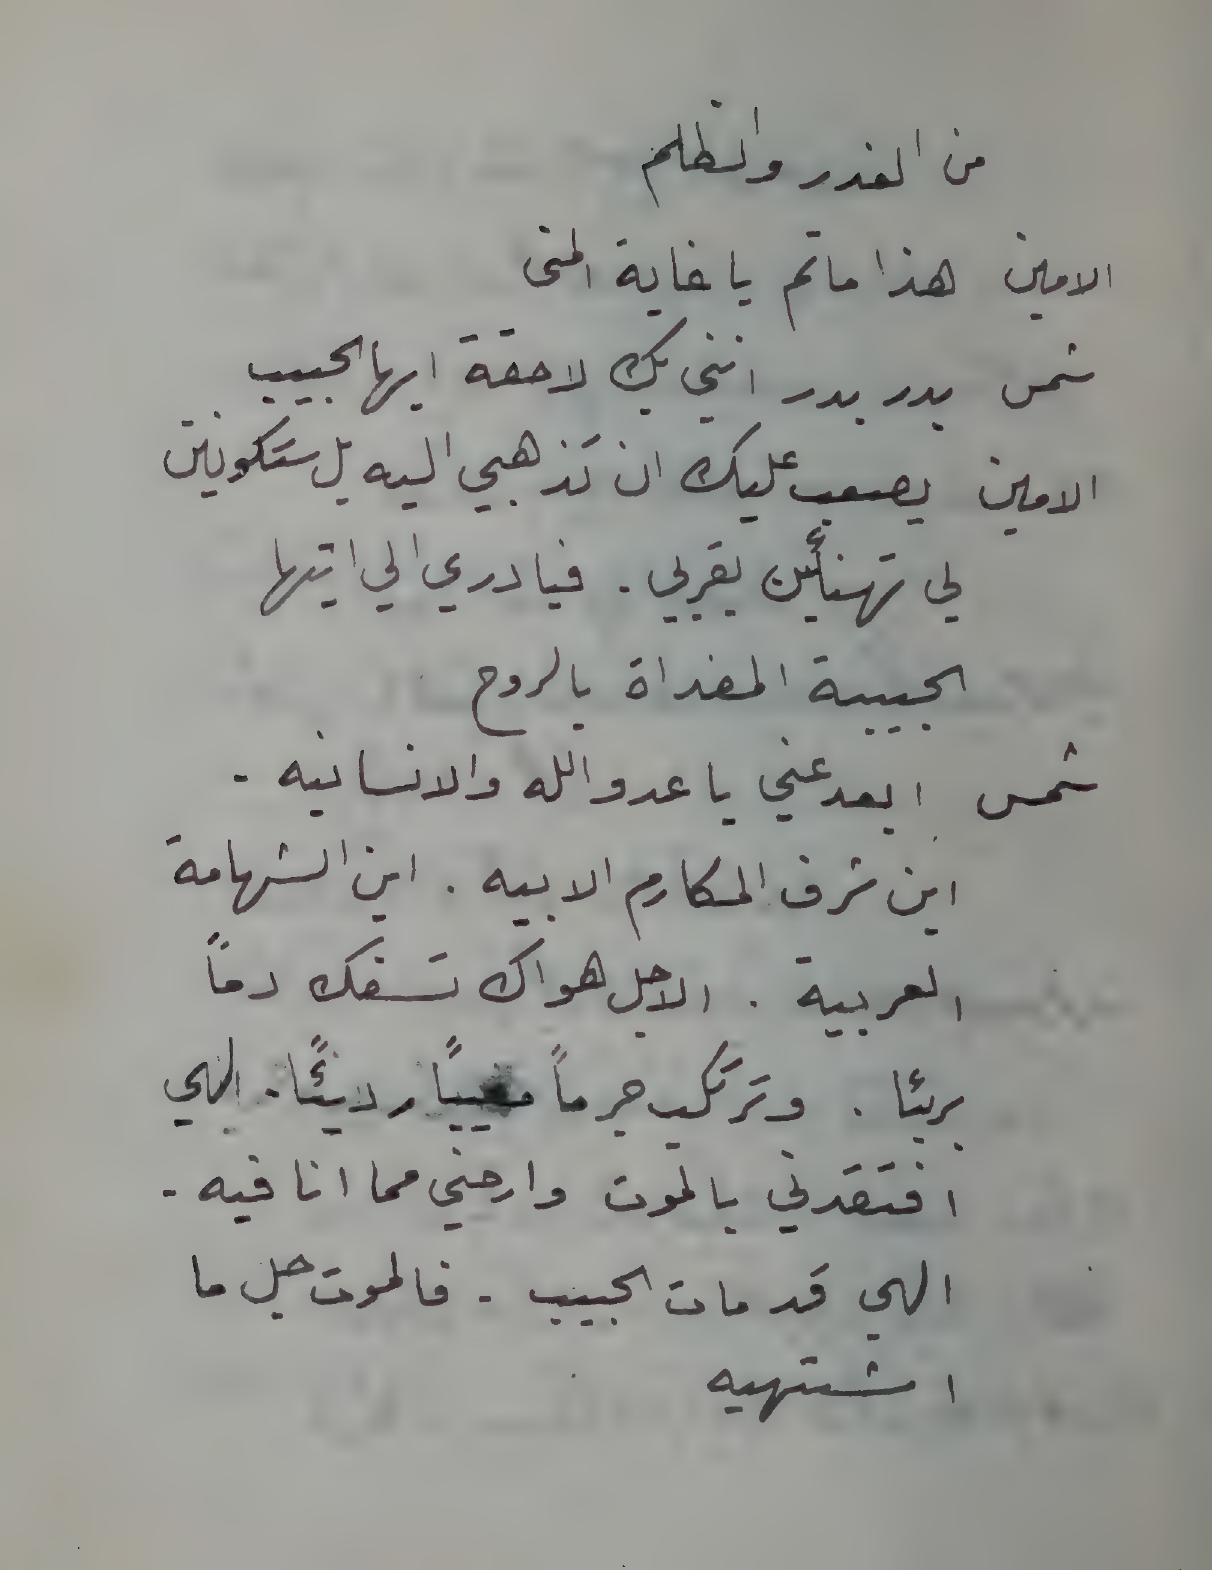 من الغدر والظلم
الامين هذا ماتم يا غاية المنى
شمس بدر بدر انني بك لاحقة ايها الحبيب
الامين يصعب عليك ان تذهبي اليه بل ستكونين
لي تهنأين بقربي . فبادري الي ايتها
الحبيبة المفداة بالروح
شمس ابعد عني يا عدو الله والانسانيه .
اين شرف المكارم الابيه . اين الشهامة
العربية . الاجل هواك تسفك دماً
بريئا . وترتكب جرماً معيباً رديئاً . الهي
افتقدني بالموت وارحني مما انا فيه .
الهي قد مات الحبيب . فالموت جل ما
اشتهيه